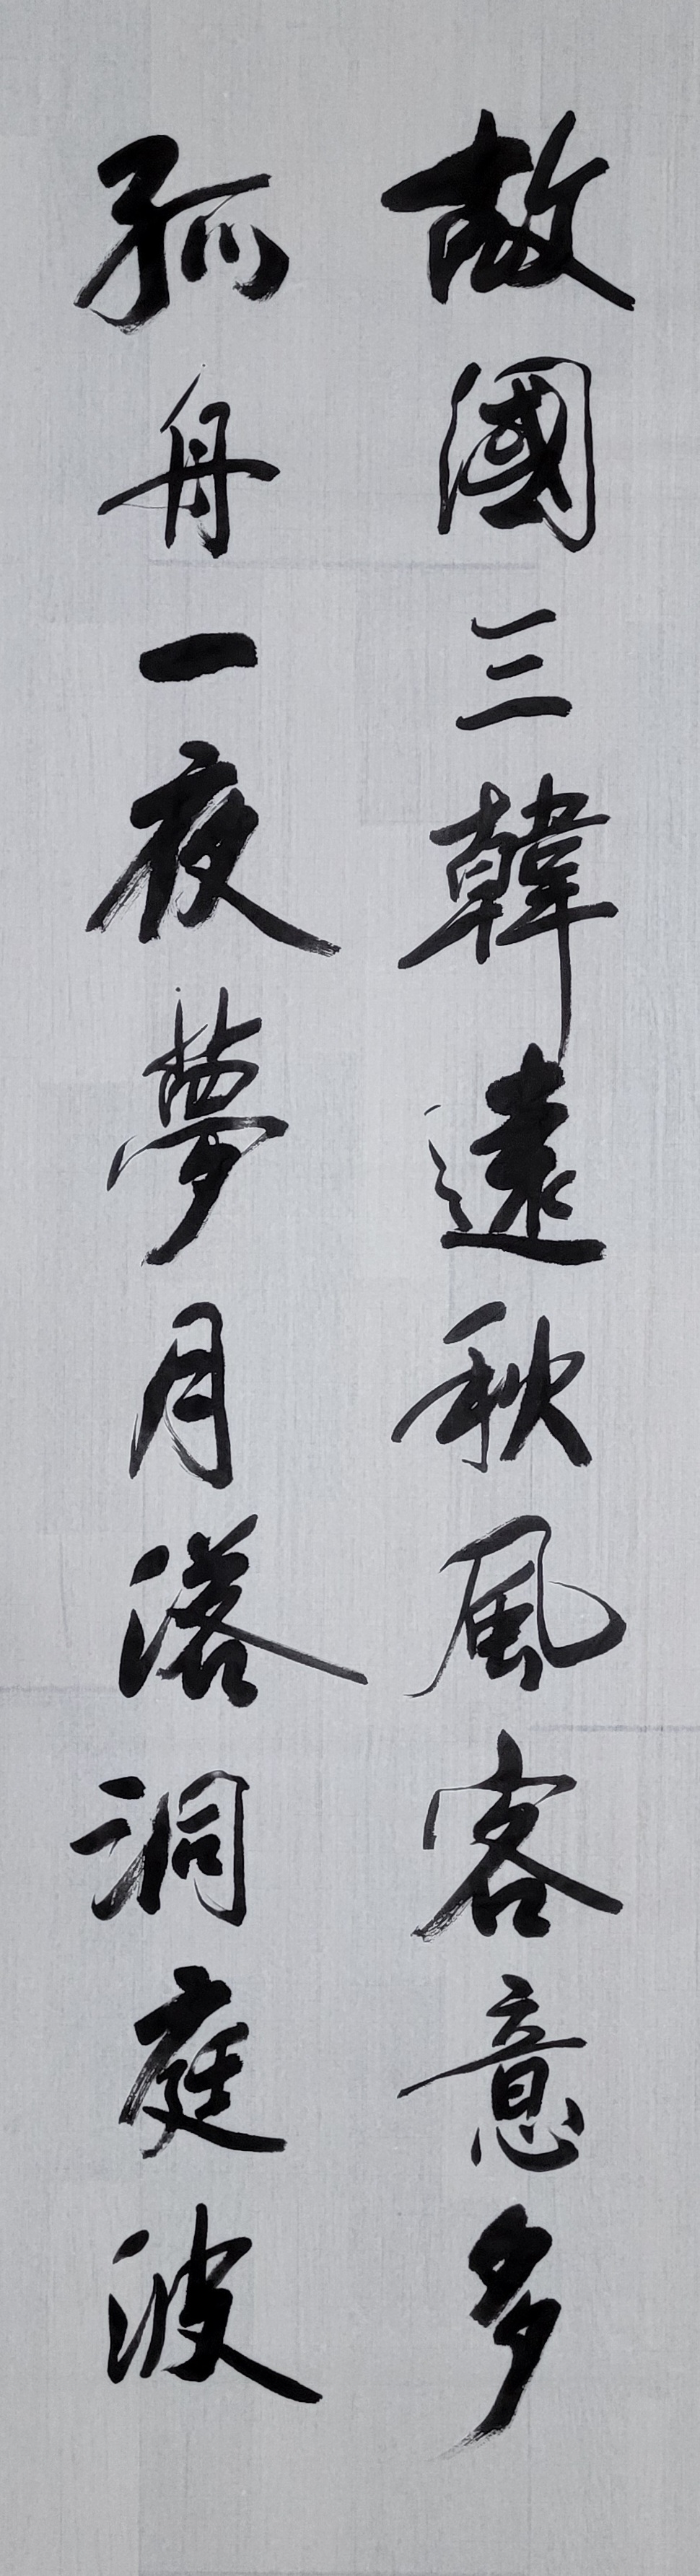 故國三韓遠秋風客意多
孤舟一夜夢月落洞庭波